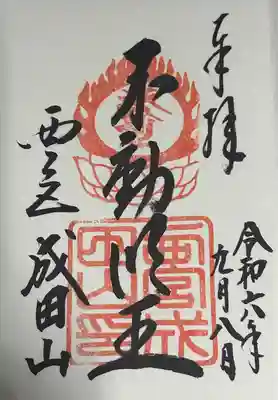 奉拝
令和六年
九月八日
不動明王
西
成田山